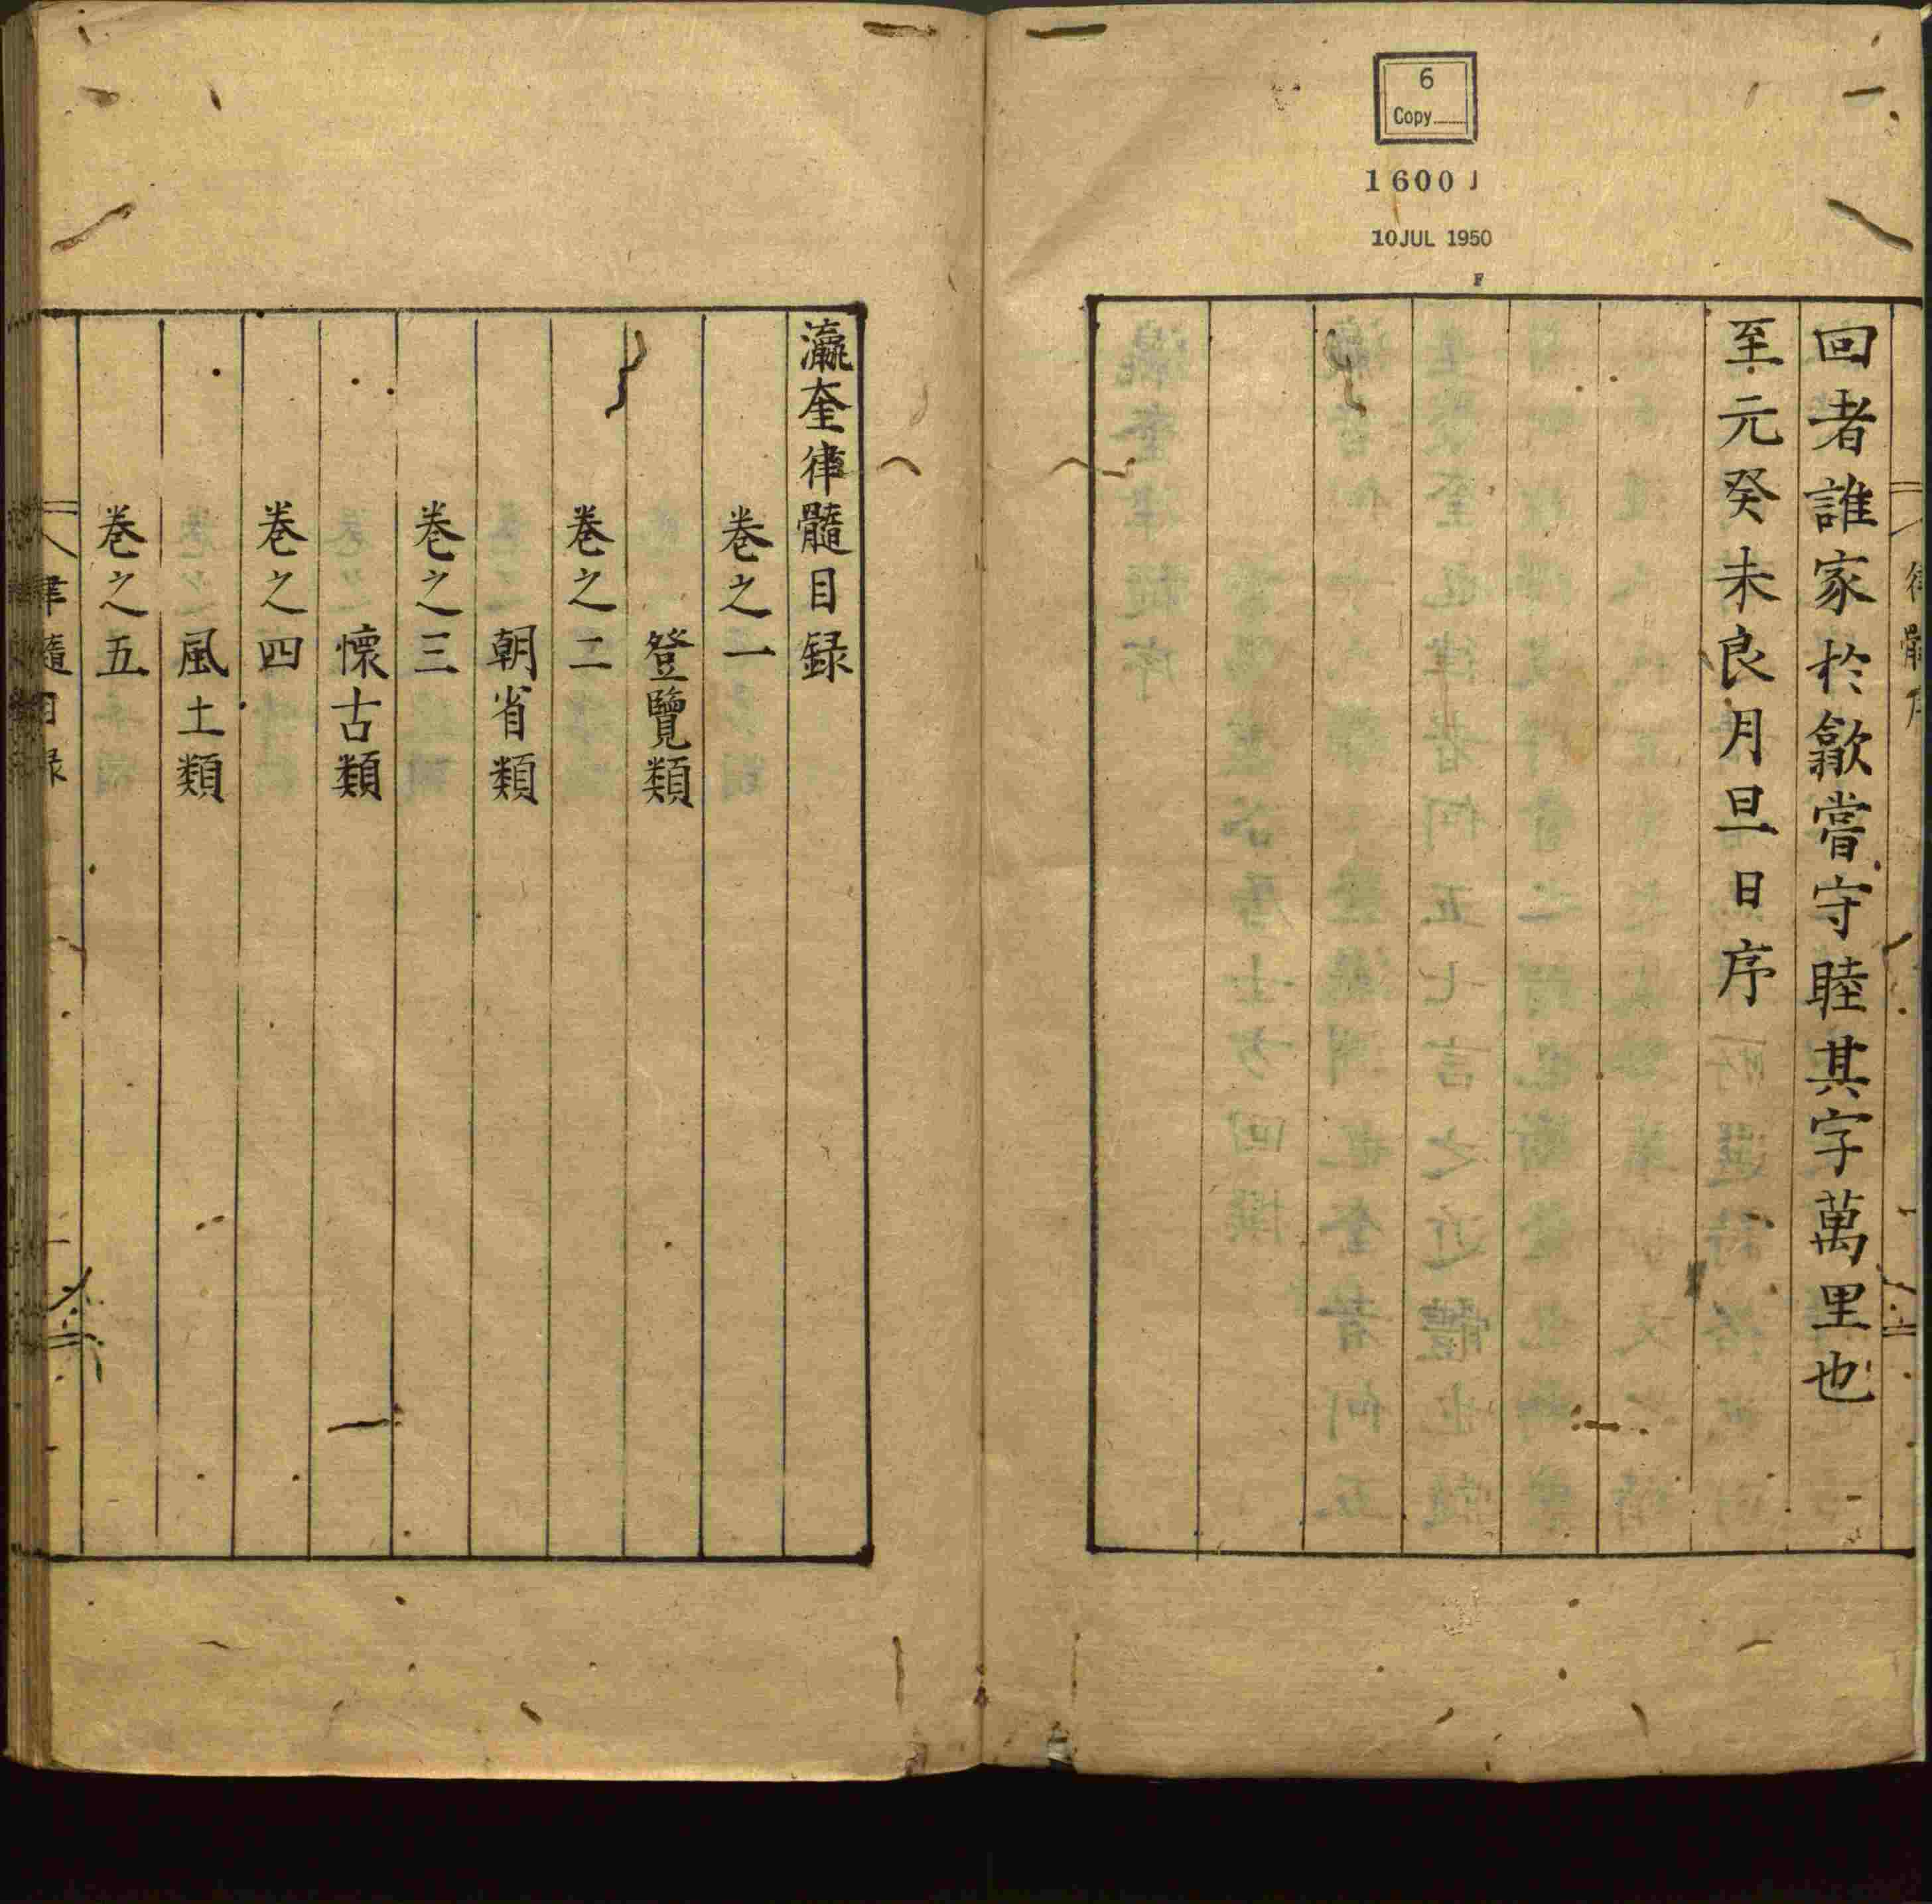 6
Copy
1600
10 JUL 1950
F
回者誰家於歙嘗守睦其字萬里也
至元癸未良月旦日序
瀛奎律髓目録
卷之一
登覽類
卷之二
朝省類
卷之三
懷古類
卷之四
風土類
卷之五
律髓目録